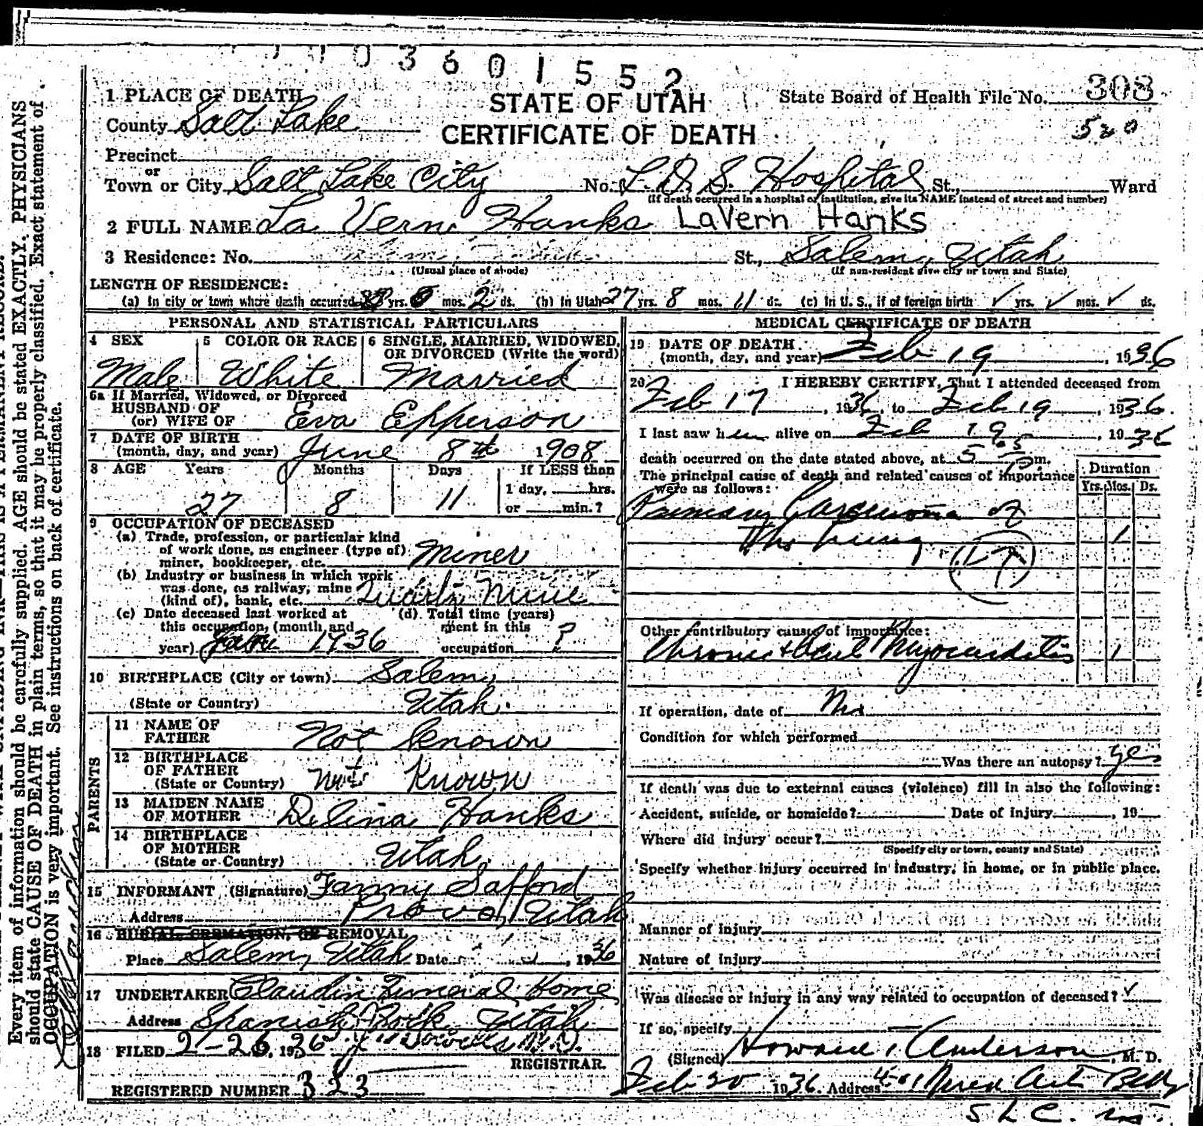 0 3 6 0 1 5 5 2
308
520
STATE OF UTAH
CERTIFICATE OF DEATH
State Board of Health File No.
1 PLACE OF DEATH
County Salt Lake
Precinct
or
Town or City Salt Lake City No. L. D. S. Hospital St., Ward
(If death occurred in a hospital or institution, give its NAME instead of street and number)
2 FULL NAME La Vern Hanks LaVern Hanks
3 Residence: No. St., Salem, Utah
(Usual place of abode) (If non-resident give city or town and State)
LENGTH OF RESIDENCE:
(a) In city or town where death occurred yrs. mos. 2 ds. (b) In Utah 27 yrs. 8 mos. 11 ds. (c) In U. S., if of foreign birth ✓ yrs. ✓ mos. ✓ ds.
PERSONAL AND STATISTICAL PARTICULARS
4 SEX 5 COLOR OR RACE 6 SINGLE, MARRIED, WIDOWED, OR DIVORCED (Write the word)
Male White Married
6a If Married, Widowed, or Divorced
HUSBAND OF
(or) WIFE OF Eva Epperson
7 DATE OF BIRTH
(month, day, and year) June 8th 1908
8 AGE Years Months Days If LESS than
1 day, hrs.
27 8 11 or min.?
9 OCCUPATION OF DECEASED
(a) Trade, profession, or particular kind
of work done, as engineer (type of)
miner, bookkeeper, etc. Miner
(b) Industry or business in which work
was done, as railway, mine
(kind of), bank, etc. Quartz Mine
(c) Date deceased last worked at (d) Total time (years)
this occupation, (month and ment in this
year) 1936 occupation ?
10 BIRTHPLACE (City or town) Salem,
(State or Country) Utah.
PARENTS
11 NAME OF
FATHER Not known
12 BIRTHPLACE
OF FATHER
(State or Country) Not Known
13 MAIDEN NAME
OF MOTHER Delina Hanks
14 BIRTHPLACE
OF MOTHER
(State or Country) Utah,
15 INFORMANT (Signature) Fanny Safford
Address Provo, Utah
16 BURIAL, CREMATION, OR REMOVAL
Place Salem, Utah Date , 1936
17 UNDERTAKER Claudin Funeral Home
Address Spanish Fork, Utah
18 FILED 2-26, 1936 M.D.
REGISTRAR
REGISTERED NUMBER 323
MEDICAL CERTIFICATE OF DEATH
19 DATE OF DEATH
(month, day, and year) Feb 19, 1936
20 I HEREBY CERTIFY, That I attended deceased from
Feb 17, 1936, to Feb 19, 1936.
I last saw him alive on Feb 19, 1936
death occurred on the date stated above, at 5 p.m.
The principal cause of death and related causes of importance
were as follows:
Duration
Yrs. Mos. Ds.
Primary Carcinoma of
the lung 1
Other contributory causes of importance:
Chronic Myocarditis 1
If operation, date of No
Condition for which performed
Was there an autopsy? yes
If death was due to external causes (violence) fill in also the following:
Accident, suicide, or homicide? Date of injury , 19
Where did injury occur?
(Specify city or town, county and State)
Specify whether injury occurred in industry, in home, or in public place.
Manner of injury
Nature of injury
Was disease or injury in any way related to occupation of deceased? ✓
If so, specify
(Signed) Howard Anderson, M. D.
Feb 20 1936 Address
S L C.
Every item of information should be carefully supplied. AGE should be stated EXACTLY. PHYSICIANS
should state CAUSE OF DEATH in plain terms, so that it may be properly classified. Exact statement of
OCCUPATION is very important. See instructions on back of certificate.